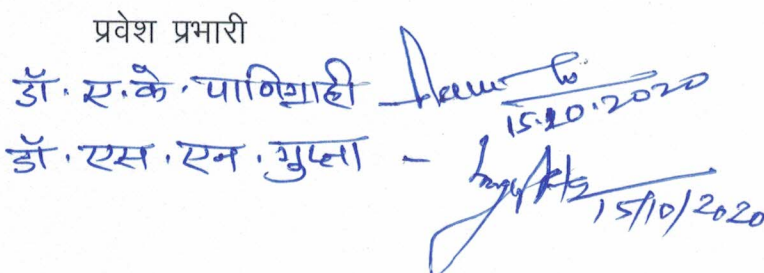 प्रवेश प्रभारी
डॉ. ए. के. पाणिग्राही -
15.10.2020
डॉ. एस. एन. गुप्ता -
15/10/2020